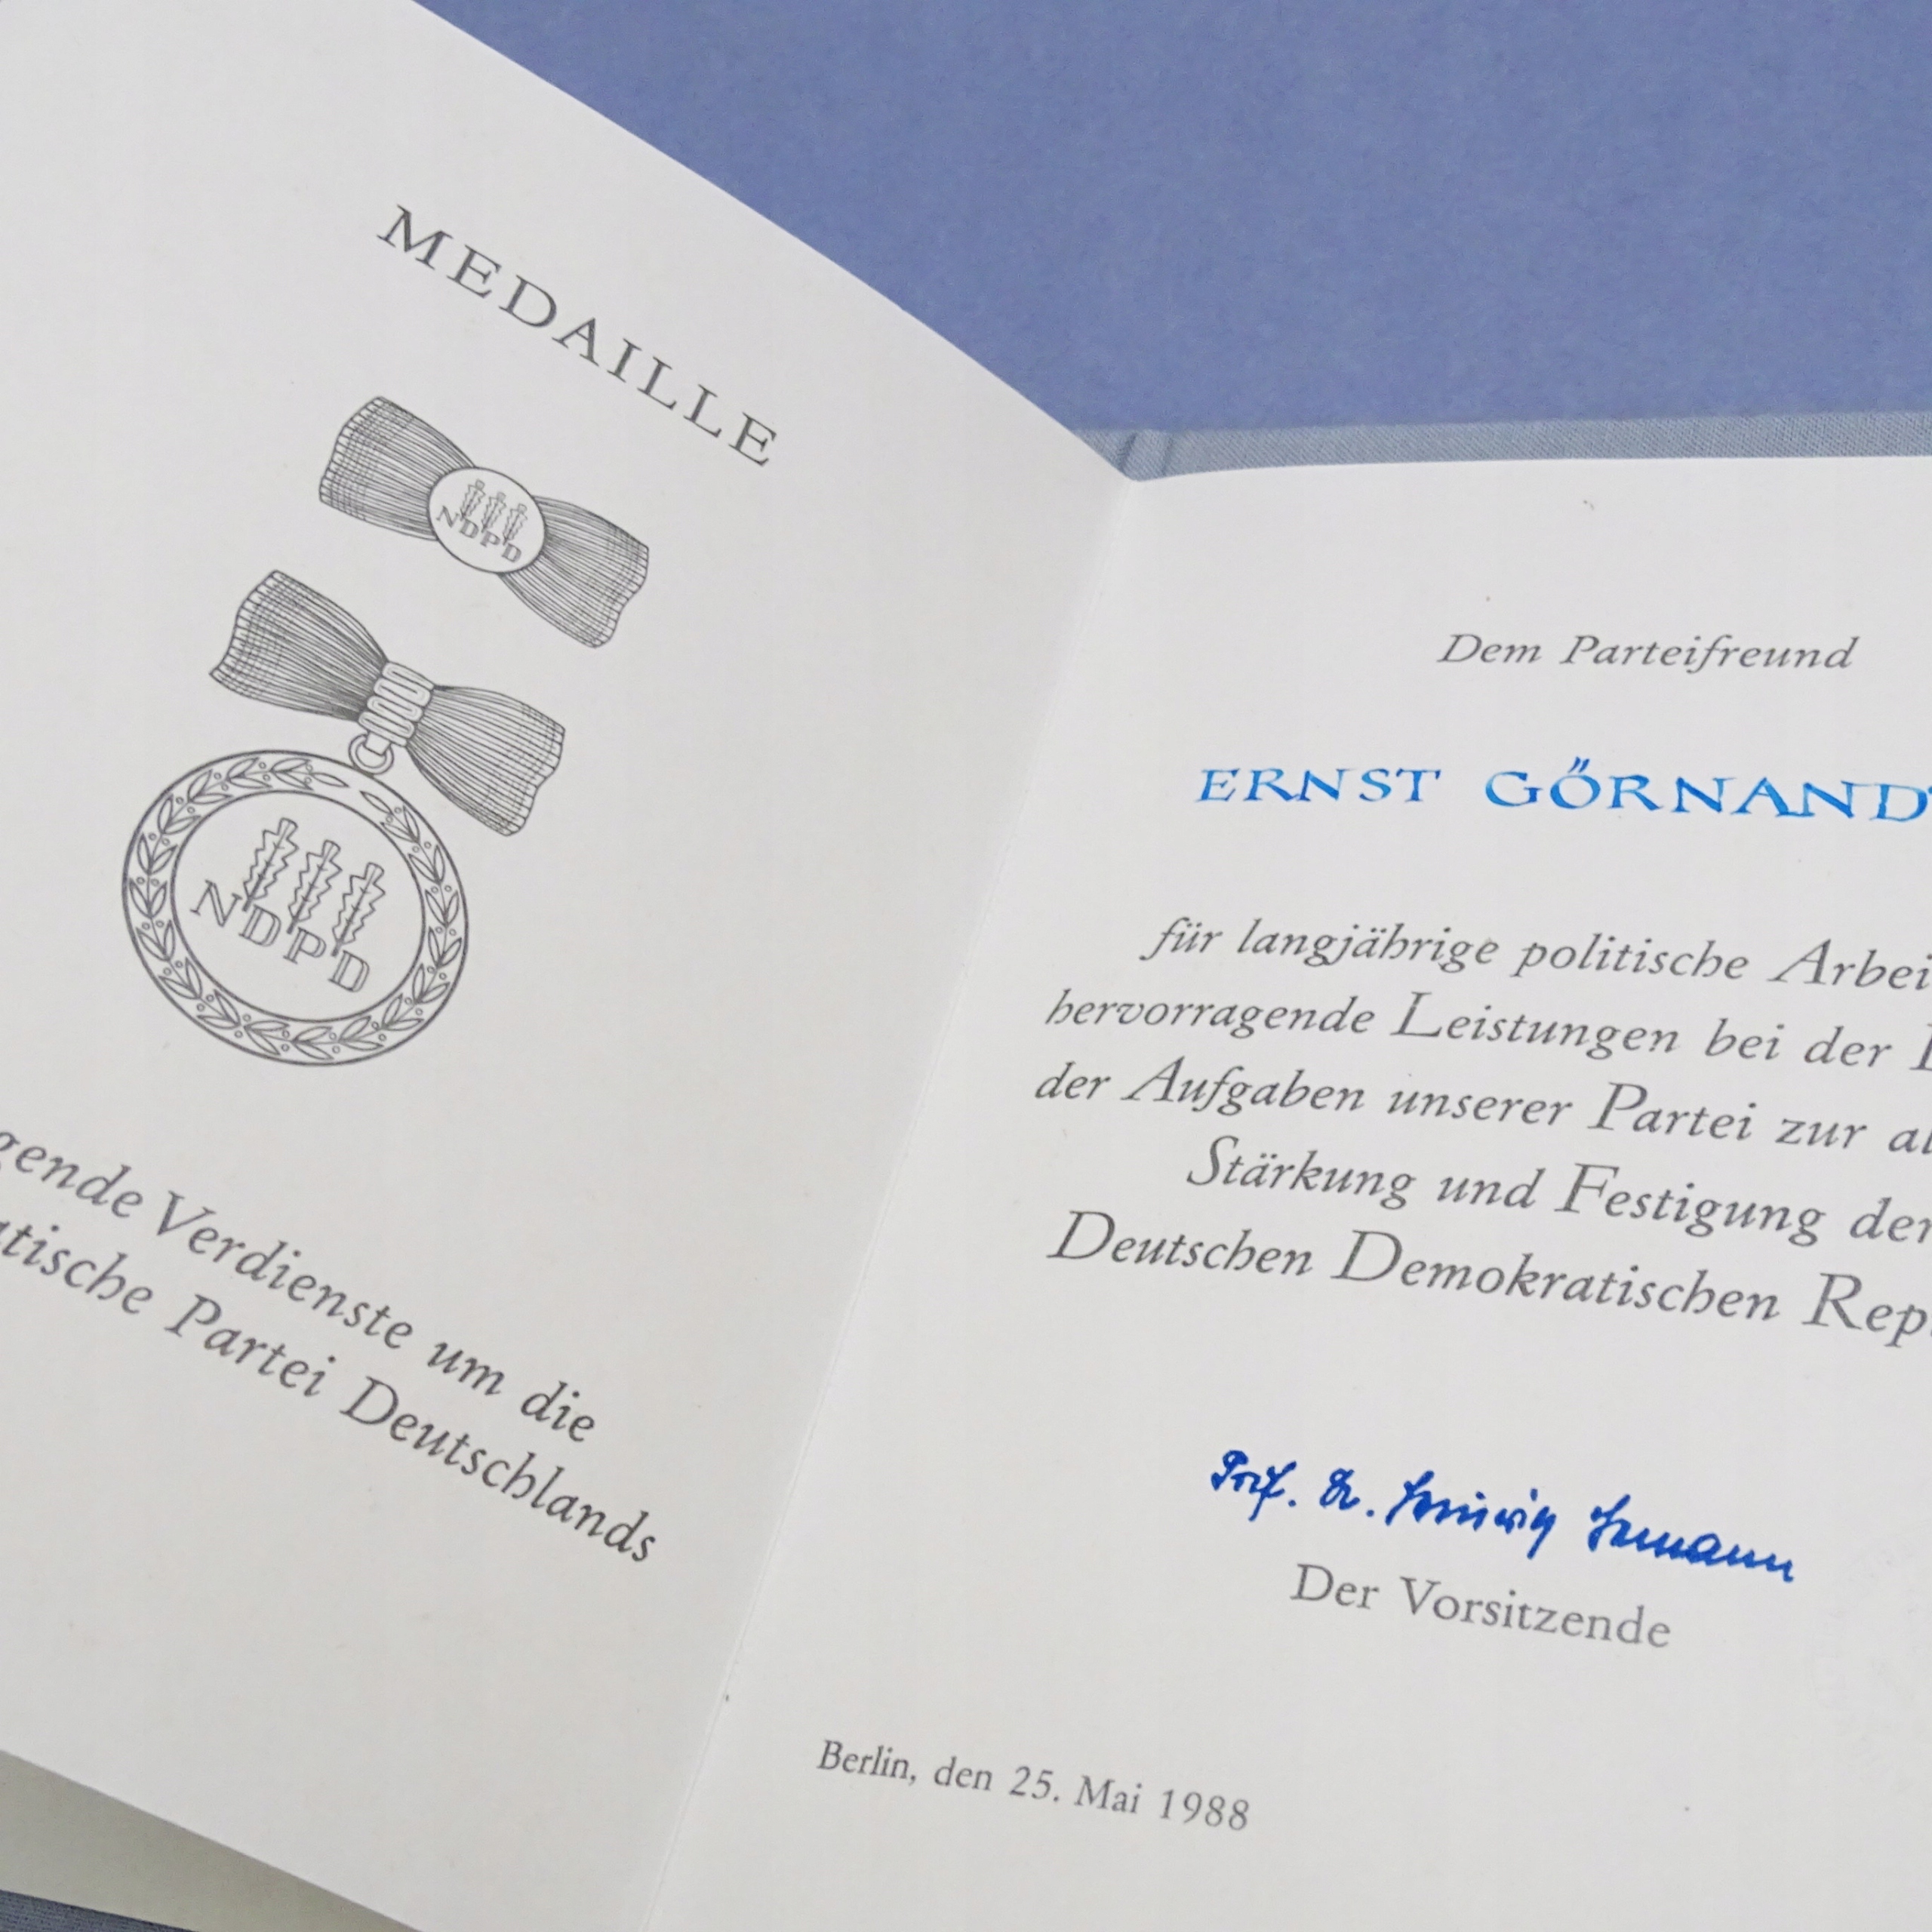 MEDAILLE
NDPD
NDPD
gende Verdienste um die
tische Partei Deutschlands
Dem Parteifreund
ERNST GÖRNAND
für langjährige politische Arbei
hervorragende Leistungen bei der
der Aufgaben unserer Partei zur al
Stärkung und Festigung der
Deutschen Demokratischen Rep
Prof. Dr.
Der Vorsitzende
Berlin, den 25. Mai 1988